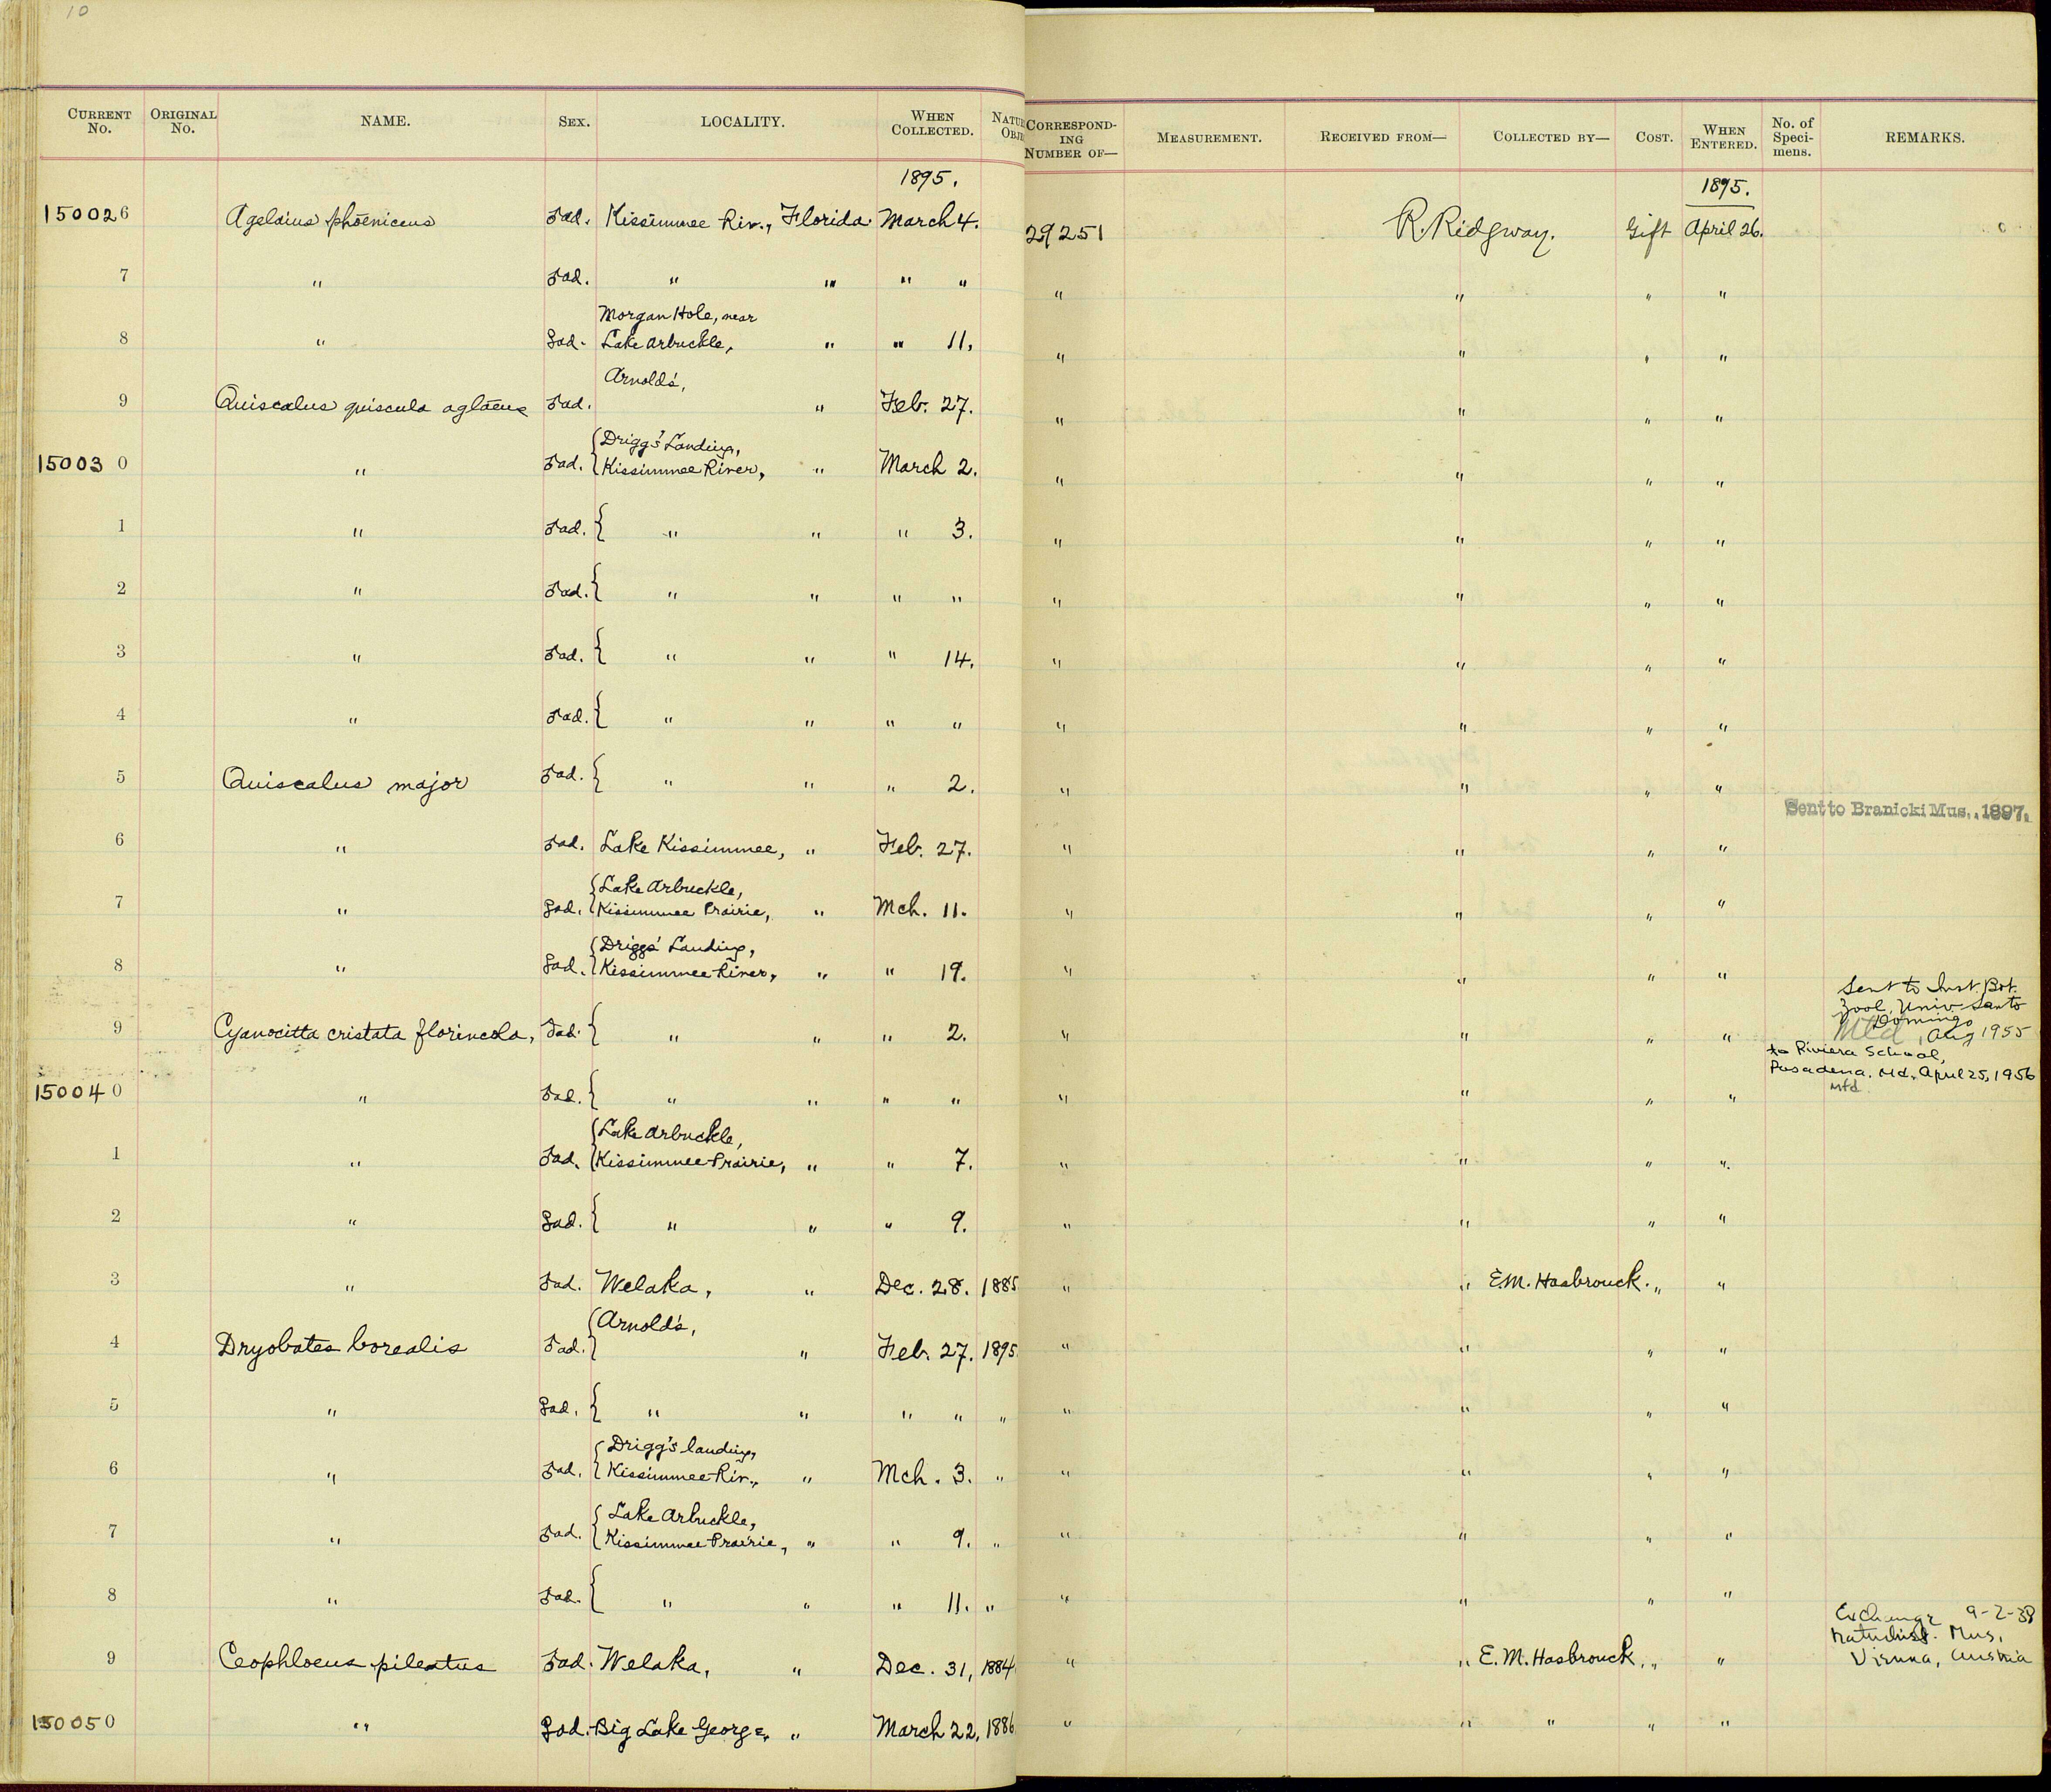 10
CURRENT No. ORIGINAL No. NAME. SEX. LOCALITY. WHEN COLLECTED. NATU OBJ CORRESPONDING NUMBER OF— MEASUREMENT. RECEIVED FROM— COLLECTED BY— COST. WHEN ENTERED. No. of Speci-mens. REMARKS.
1895. 1895.
150026 Agelaius phoeniceus ♂ad. Kissimmee Riv., Florida March 4. 29251 R. Ridgway. Gift April 26.
7 " ♂ad. " " " " " " " "
Morgan Hole, near
8 " ♀ad. Lake Arbuckle, " " 11, " " " "
Arnold's,
9 Quiscalus quiscula aglaeus ♂ad. " Feb. 27. " " " "
Drigg's Landing,
150030 " ♂ad. Kissimmee River, " March 2. " " " "
1 " ♂ad. " " " 3. " " " "
2 " ♂ad. " " " " " " " "
3 " ♂ad. " " " 14. " " " "
4 " ♂ad. " " " " " " " "
5 Quiscalus major ♂ad. " " " 2. " " " "
Sent to Branicki Mus., 1897.
6 " ♂ad. Lake Kissimmee, " Feb. 27. " " " "
Lake Arbuckle,
7 " ♀ad. Kissimmee Prairie, " Mch. 11. " " " "
Driggs' Landing,
8 " ♀ad. Kissimmee River, " " 19. " " " "
Sent to Inst. Bot.
Zool, Univ. Santo
Domingo
9 Cyanocitta cristata florincola, ♂ad. " " " 2. " " " " Mtd , Aug 1955
to Riviera School,
Pasadena. Md. April 25, 1956
150040 " ♂ad. " " " " " " " " Mtd
Lake Arbuckle,
1 " ♂ad. Kissimmee Prairie, " " 7. " " " ".
2 " ♀ad. " " " 9. " " " "
3 " ♂ad. Welaka, " Dec. 28. 1885 " " E.M. Hasbrouck. " "
Arnold's,
4 Dryobates borealis ♂ad. " Feb. 27. 1895. " " " "
5 " ♀ad. " " " " " " " " "
Drigg's landing,
6 " ♂ad. Kissimmee Riv., " Mch. 3. " " " " "
Lake Arbuckle,
7 " ♂ad. Kissimmee Prairie, " " 9. " " " " "
8 " ♂ad. " " " 11. " " " " "
Exchange 9-2-38
Mus.
9 Ceophloeus pileatus ♂ad. Welaka, " Dec. 31, 1884 " " E.M. Hasbrouck, " " Vienna, Austria
150050 " ♀ad. Big Lake George, " March 22, 1886 " " " " "